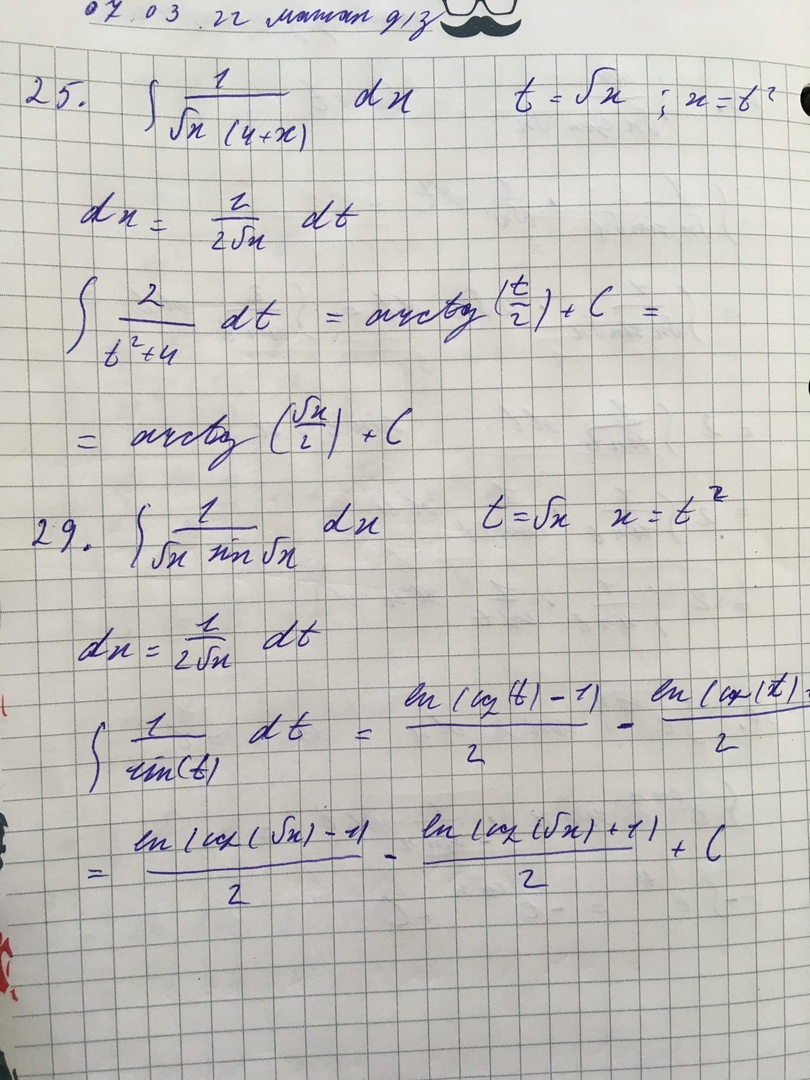 07.03.22 матан д/з
25. ∫ 1/(√x (4+x)) dx t = √x ; x = t²
dx = 1/(2√x) dt
∫ 2/(t²+4) dt = arctg (t/2) + C =
= arctg (√x/2) + C
29. ∫ 1/(√x sin √x) dx t = √x x = t²
dx = 1/(2√x) dt
∫ 1/sin(t) dt = ln(cos(t) - 1)/2 - ln(cos(t) +/2
= ln(cos(√x) - 1)/2 - ln(cos(√x) + 1)/2 + C